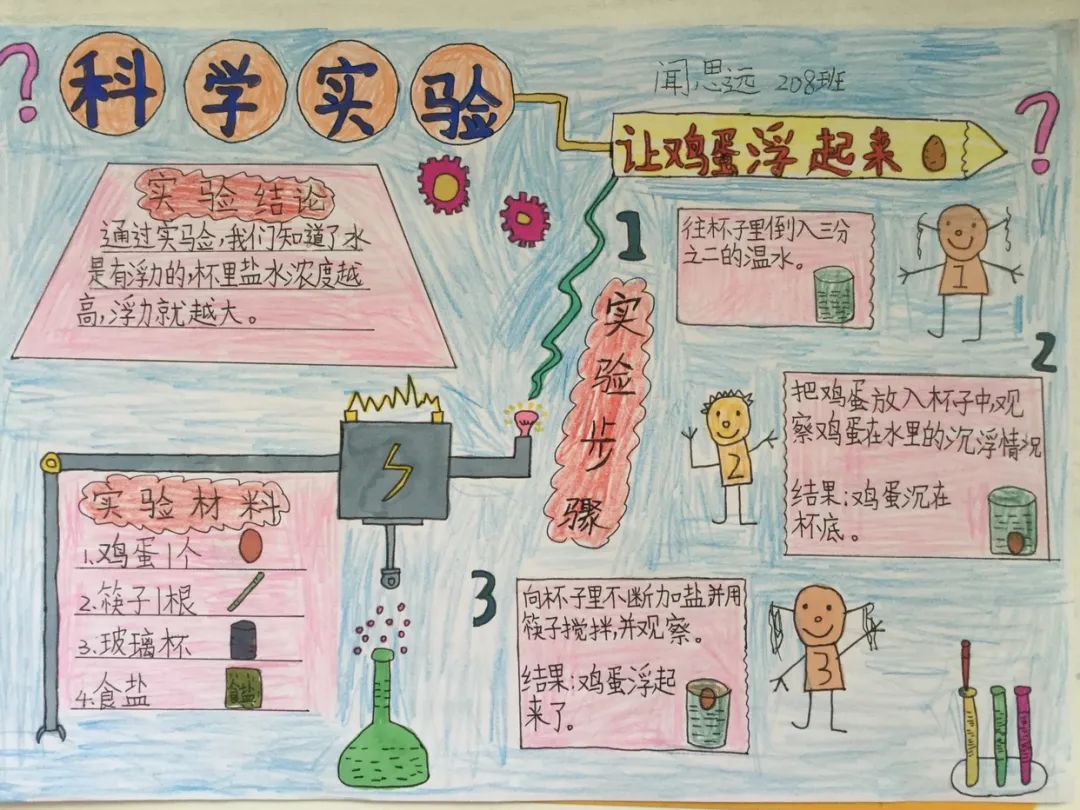 科学实验
闻思远 208班
让鸡蛋浮起来
实验结论
通过实验,我们知道了水
是有浮力的,杯里盐水浓度越
高,浮力就越大。
实验材料
1.鸡蛋1个
2.筷子1根
3.玻璃杯
4.食盐
食盐
实验步骤
1
往杯子里倒入三分
之二的温水。
1
2
把鸡蛋放入杯子中,观
察鸡蛋在水里的沉浮情况
结果:鸡蛋沉在
杯底。
2
3
向杯子里不断加盐并用
筷子搅拌,并观察。
结果:鸡蛋浮起
来了。
3